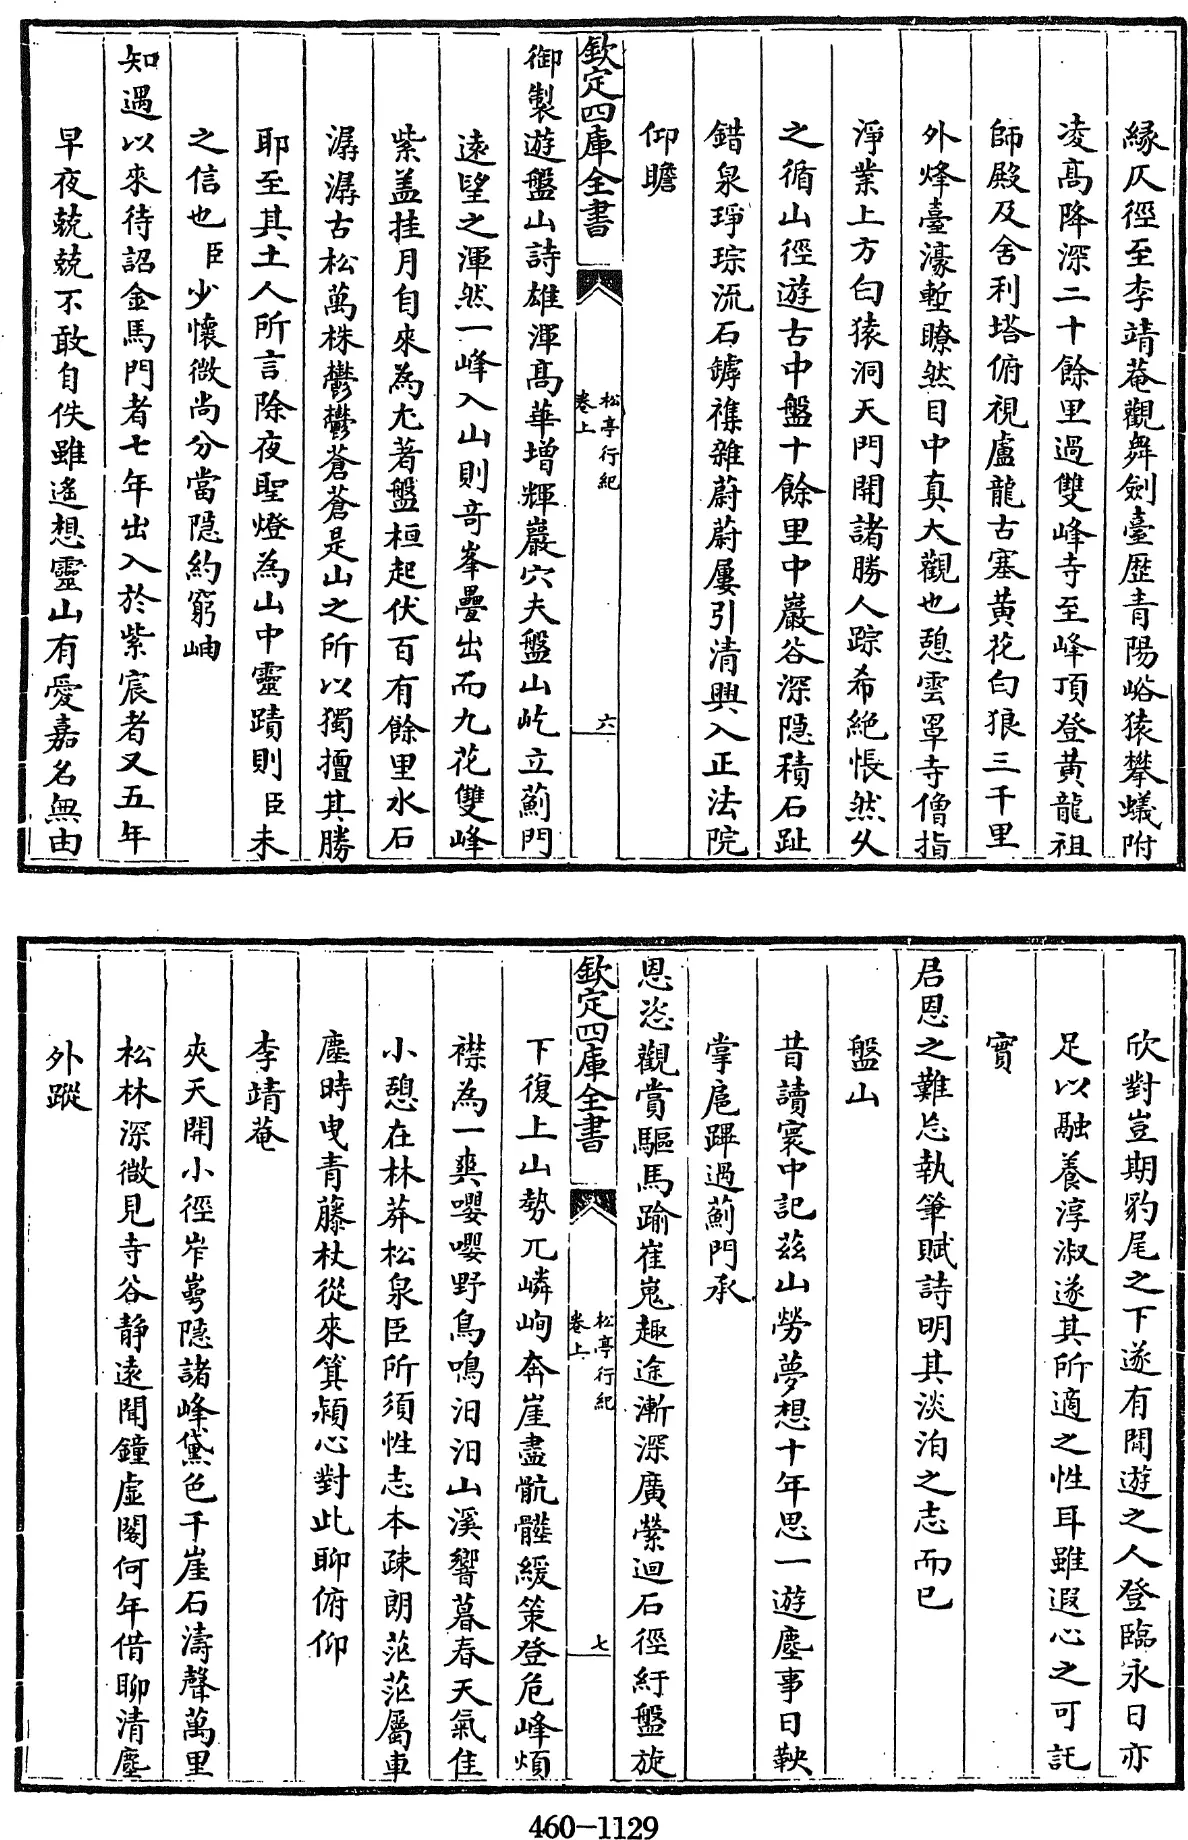 縁仄徑至李靖菴觀舞劍臺歴青陽峪猿攀蟻附
凌髙降深二十餘里過雙峰寺至峰頂登黄龍祖
師殿及舍利塔俯視盧龍古塞黄花白狼三千里
外烽臺濠塹瞭然目中真大觀也憩雲罩寺僧指
淨業上方白猿洞天門開諸勝人踪希絶悵然久
之循山徑遊古中盤十餘里中巖谷深隠積石趾
錯泉琤琮流石罅襍雜蔚蔚屢引清興入正法院
仰瞻
欽定四庫全書
松亭行紀
卷上
六
御製遊盤山詩雄渾髙華增輝巖穴夫盤山屹立薊門
遠望之渾然一峰入山則竒峯疊出而九花雙峰
紫盖挂月自來為尤著盤桓起伏百有餘里水石
潺潺古松萬株鬱鬱蒼蒼是山之所以獨擅其勝
耶至其土人所言除夜聖燈為山中靈蹟則臣未
之信也臣少懷微尚分當隠約窮岫
知遇以來待詔金馬門者七年出入於紫宸者又五年
早夜兢兢不敢自佚雖遙想靈山有愛嘉名無由
欣對豈期豹尾之下遂有閒遊之人登臨永日亦
足以融養淳淑遂其所適之性耳雖遐心之可託
實
君恩之難忘執筆賦詩明其淡泊之志而已
盤山
昔讀寰中記茲山勞夢想十年思一遊塵事日鞅
掌扈蹕過薊門承
恩恣觀賞驅馬踰崔嵬趣途漸深廣縈迴石徑紆盤旋
欽定四庫全書
松亭行紀
卷上
七
下復上山勢兀嶙峋奔崖盡骯髒緩策登危峰煩
襟為一爽嚶嚶野鳥鳴汨汨山溪響暮春天氣佳
小憩在林莽松泉臣所須性志本疎朗茫茫屬車
塵時曳青藤杖從來箕潁心對此聊俯仰
李靖菴
夾天開小徑岝崿隠諸峰黛色千崖石濤聲萬里
松林深微見寺谷静遠聞鐘虛閣何年借聊清塵
外蹤
460-1129